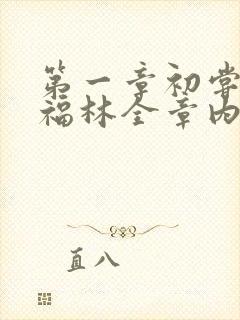 第一章初尝
福林全章内
直八